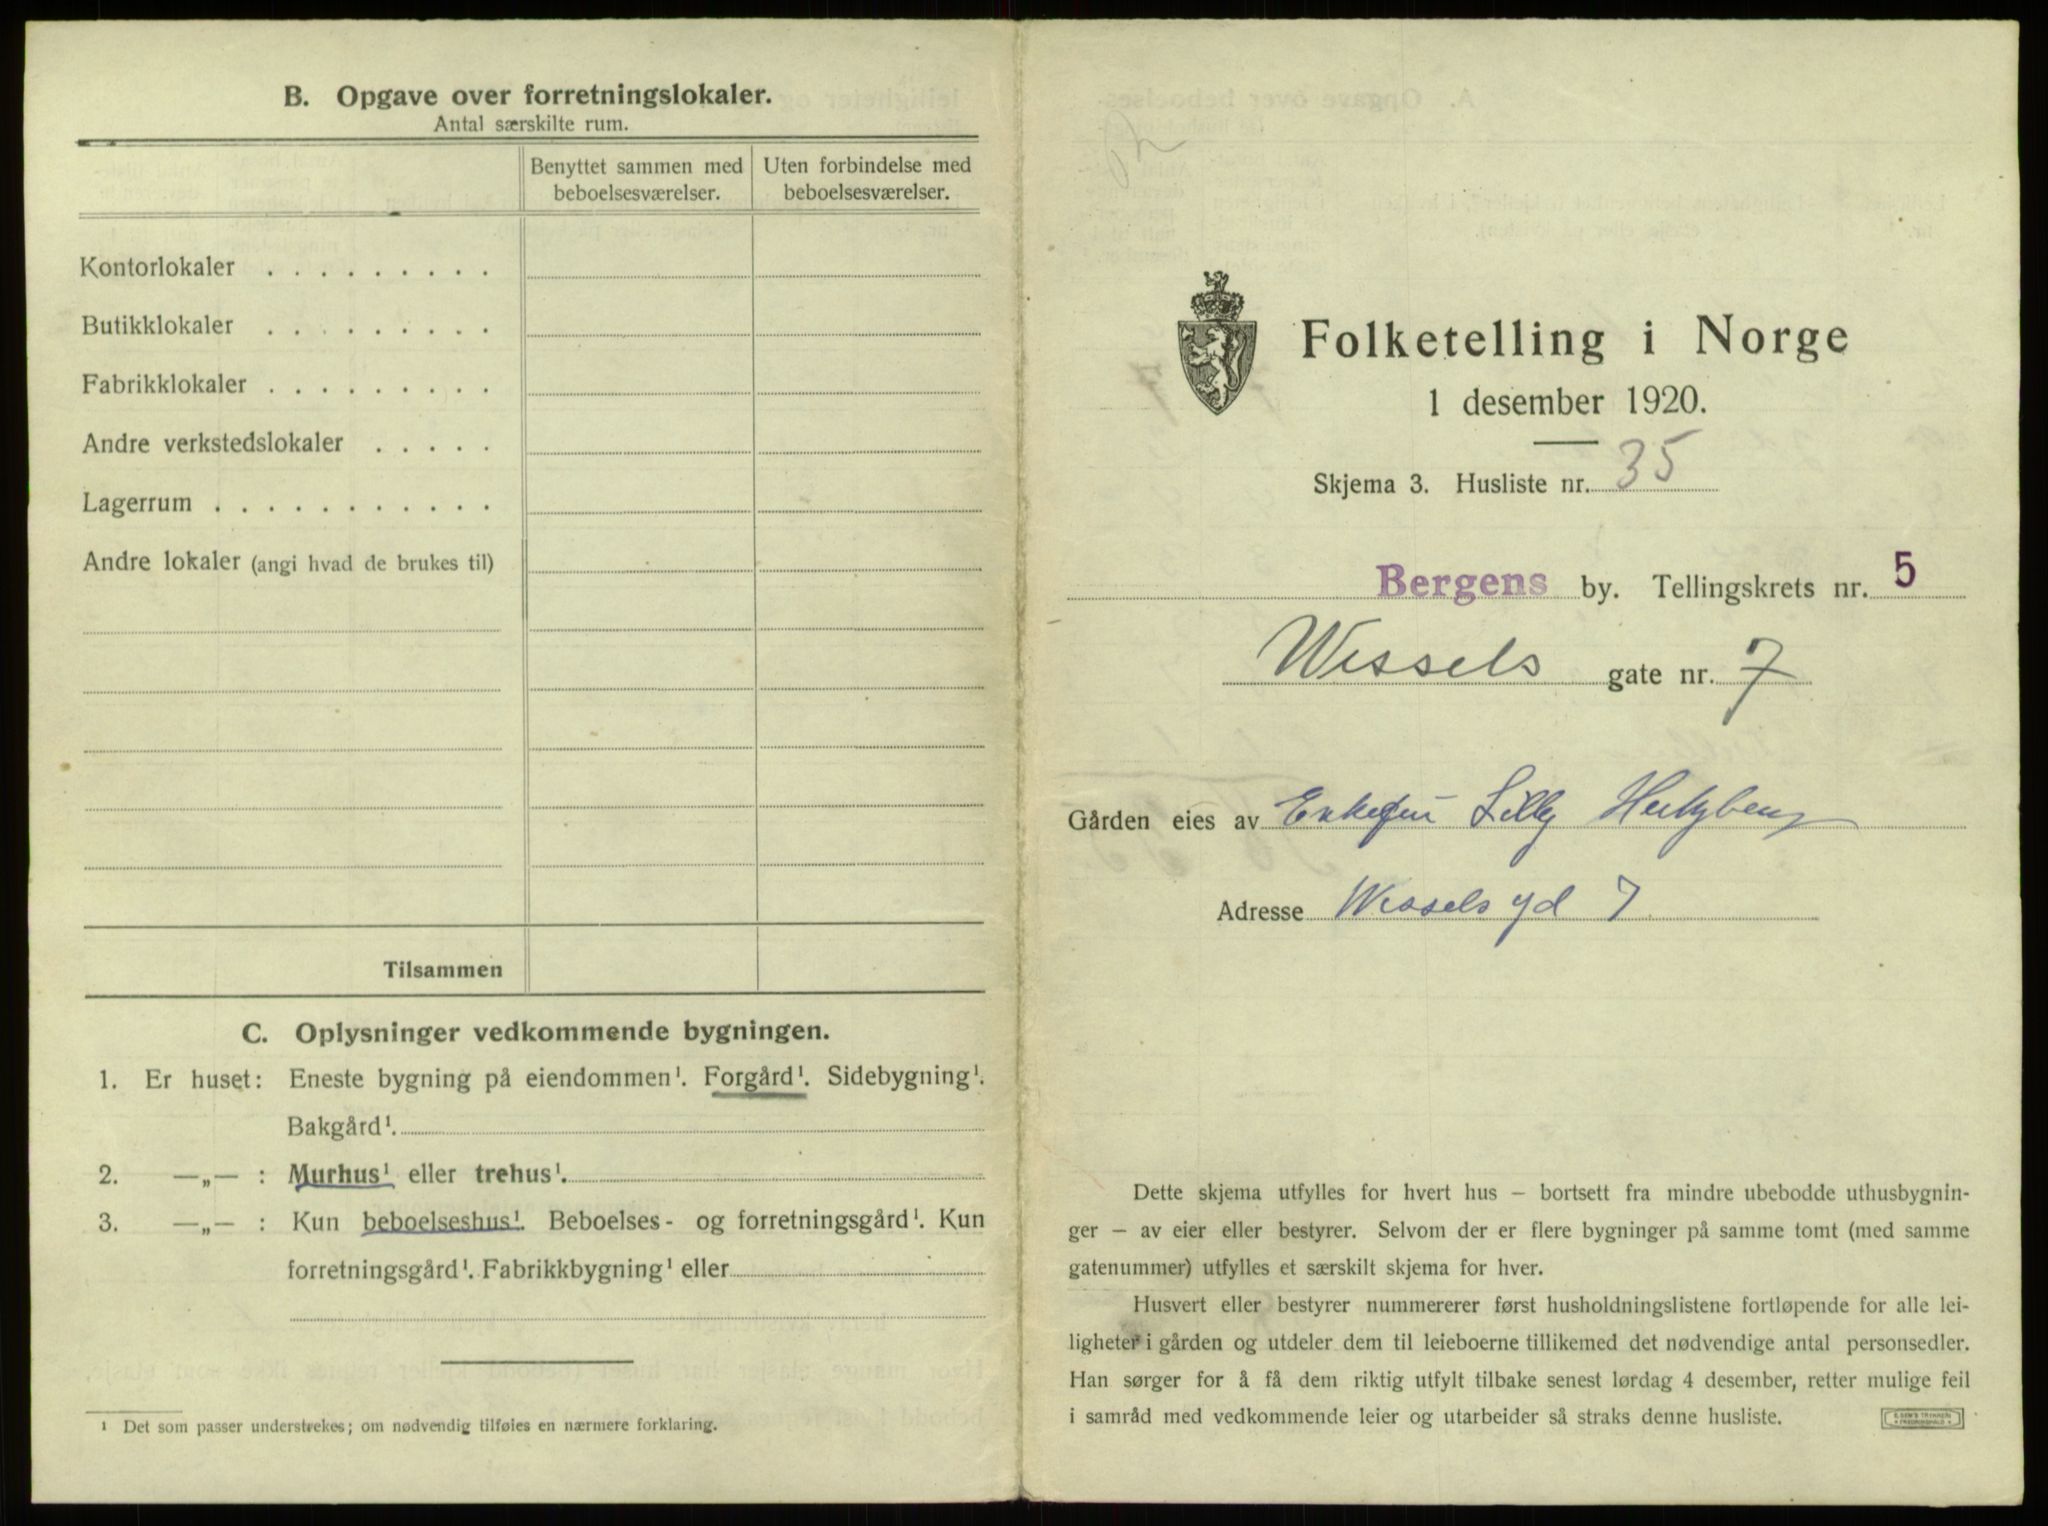 B. Opgave over forretningslokaler.
Antal særskilte rum.
Benyttet sammen med beboelsesværelser.
Uten forbindelse med beboelsesværelser.
Kontorlokaler . . . . . . . . .
Butikklokaler . . . . . . . . .
Fabrikklokaler . . . . . . . . .
Andre verkstedslokaler . . . . .
Lagerrum . . . . . . . . . . .
Andre lokaler (angi hvad de brukes til)
Tilsammen
C. Oplysninger vedkommende bygningen.
1. Er huset: Eneste bygning på eiendommen¹. Forgård¹. Sidebygning¹.
Bakgård¹.
2. —„— : Murhus¹ eller trehus¹.
3. —„— : Kun beboelseshus¹. Beboelses- og forretningsgård¹. Kun
forretningsgård¹. Fabrikkbygning¹ eller
¹ Det som passer understrekes; om nødvendig tilføies en nærmere forklaring.
Folketelling i Norge
1 desember 1920.
Skjema 3. Husliste nr. 35
Bergens by. Tellingskrets nr. 5
Wessels gate nr. 7
Gården eies av Enkefru Lilly
Adresse Wessels gd 7
Dette skjema utfylles for hvert hus – bortsett fra mindre ubebodde uthusbygnin-
ger – av eier eller bestyrer. Selvom der er flere bygninger på samme tomt (med samme
gatenummer) utfylles et særskilt skjema for hver.
Husvert eller bestyrer nummererer først husholdningslistene fortløpende for alle lei-
ligheter i gården og utdeler dem til leieboerne tillikemed det nødvendige antal personsedler.
Han sørger for å få dem riktig utfylt tilbake senest lørdag 4 desember, retter mulige feil
i samråd med vedkommende leier og utarbeider så straks denne husliste.